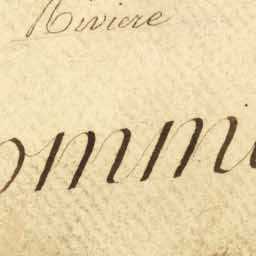 Riviere
ommi